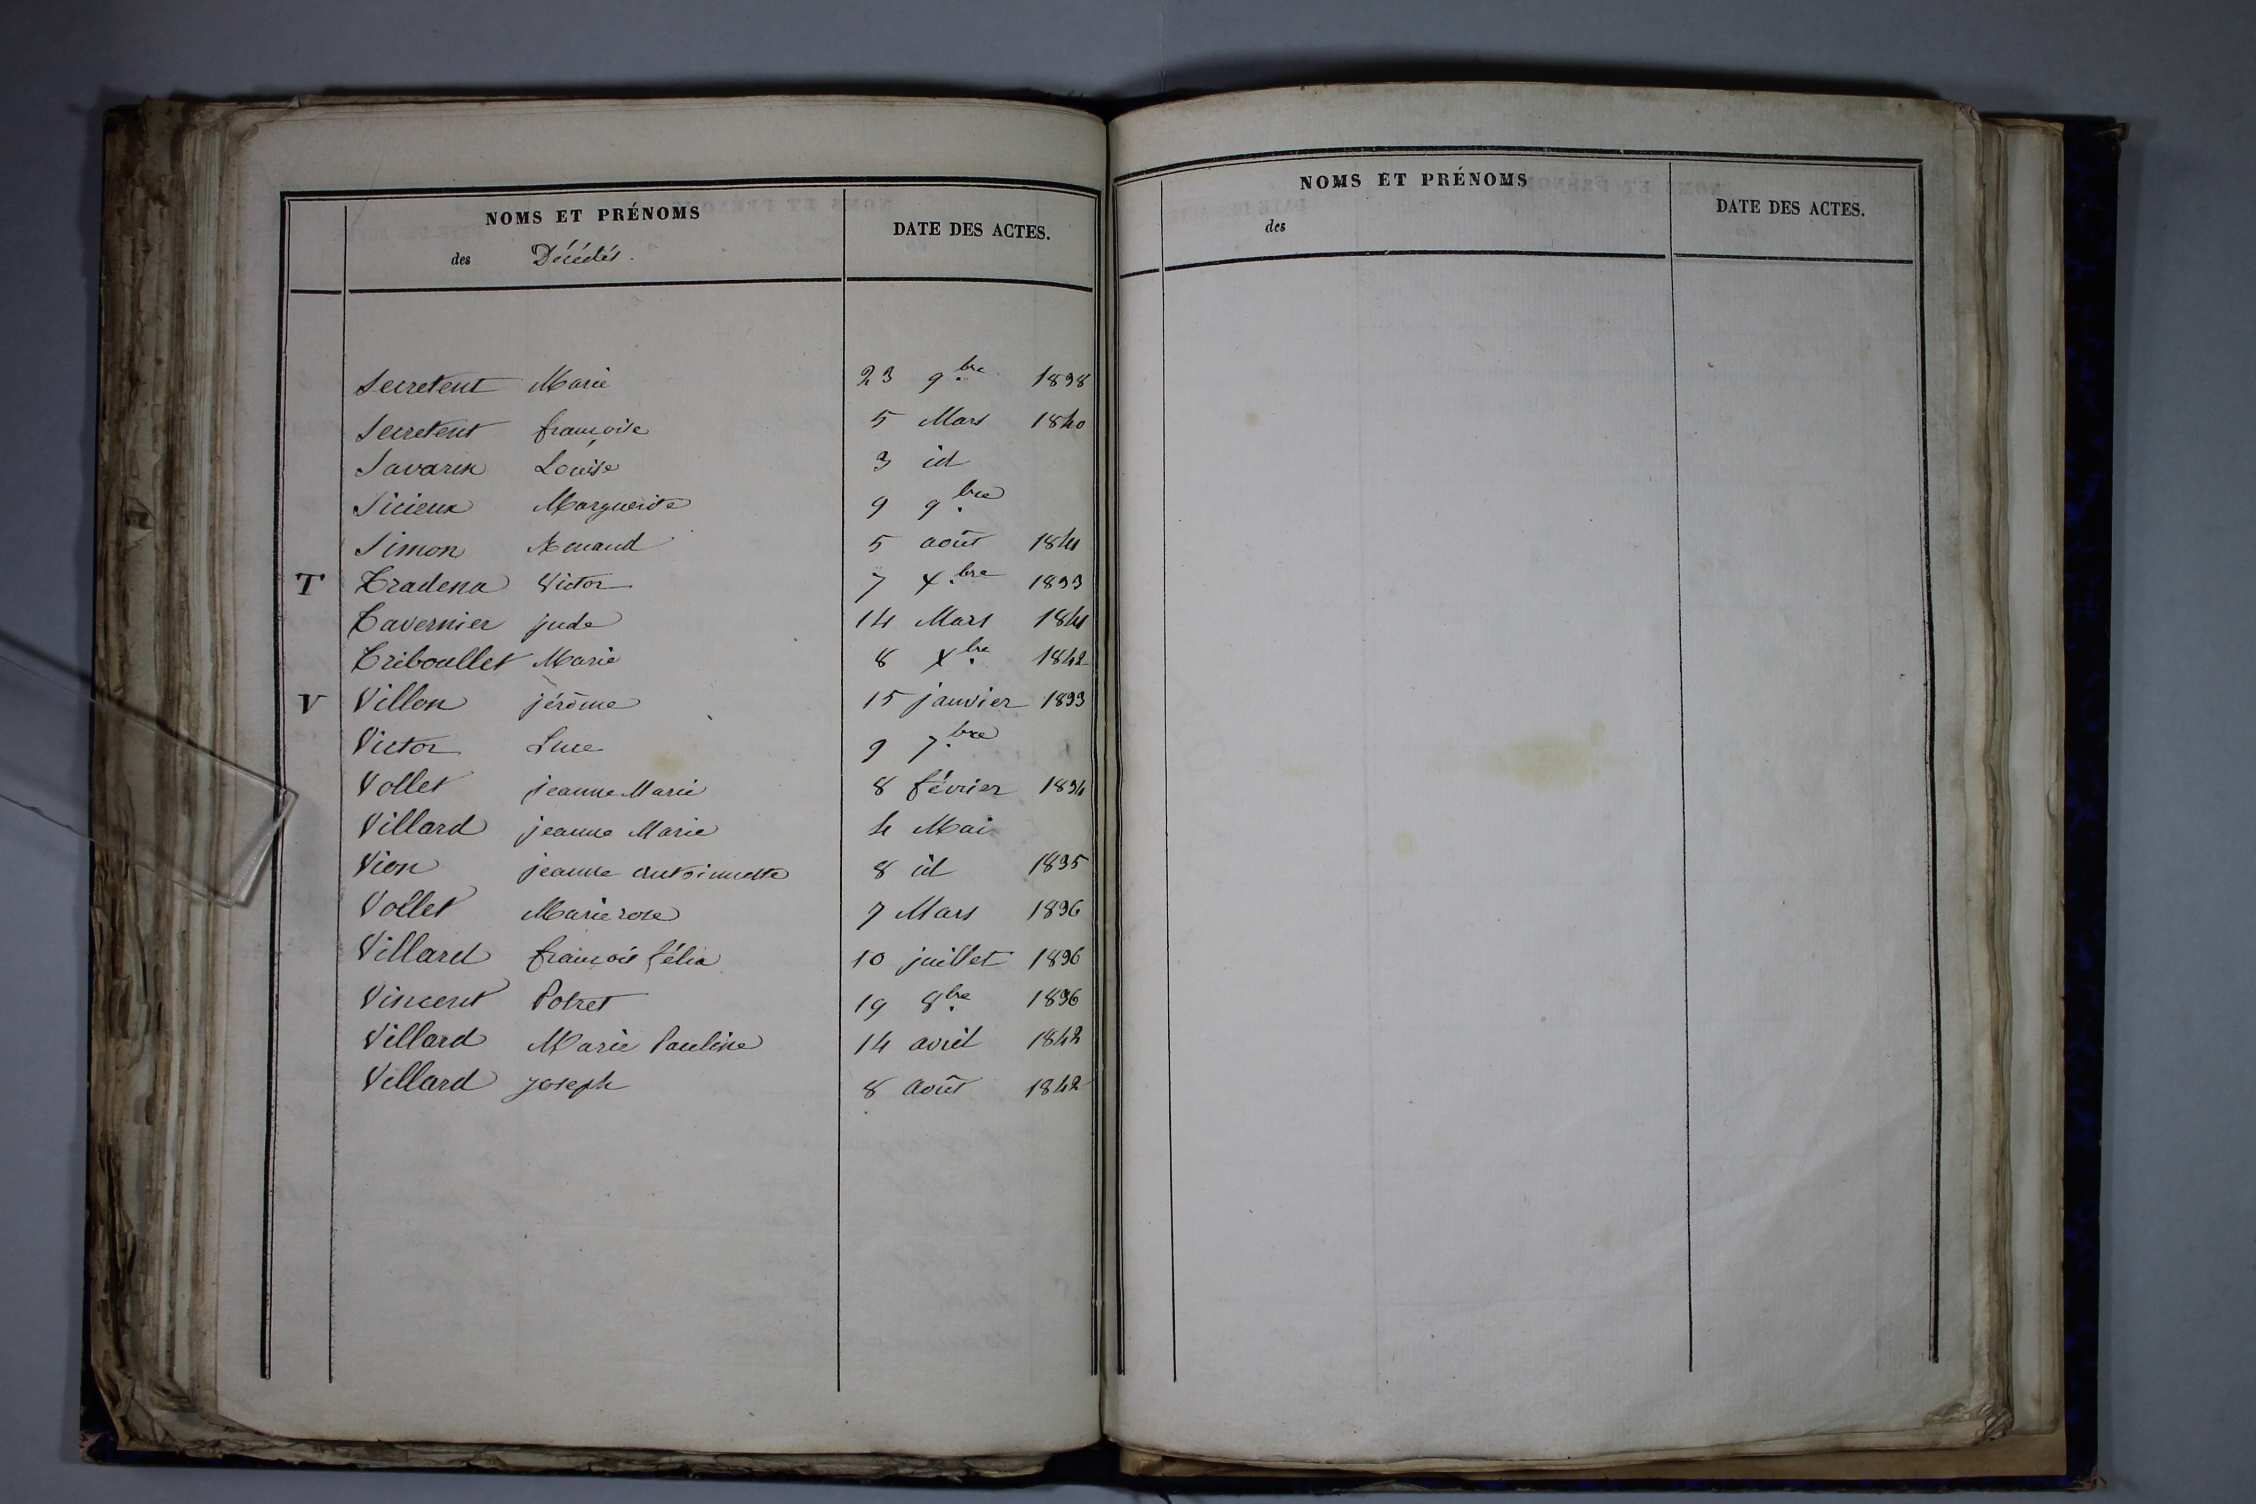 NOMS ET PRÉNOMS
des Décédés.
DATE DES ACTES.
Secretent Marie 23 9bre 1838
Secretent françoise 5 Mars 1840
Savarin Louise 3 id
Sicieux Marguerite 9 9bre
Simon Renaud 5 août 1841
T Tradena Victor 7 Xbre 1833
Tavernier jude 14 Mars 1841
Triboullet Marie 8 Xbre 1842
V Villon jérôme 15 janvier 1833
Victor Luce 9 7bre
Vollet jeanne Marie 8 février 1834
Villard jeanne Marie 4 Mai
Vion jeanne antoinette 8 id 1835
Vollet Marie rose 7 Mars 1836
Villard françois félix 10 juillet 1836
Vincent 19 8bre 1836
Villard Marie Pauline 14 avril 1842
Villard joseph 8 Août 1842
NOMS ET PRÉNOMS
des
DATE DES ACTES.